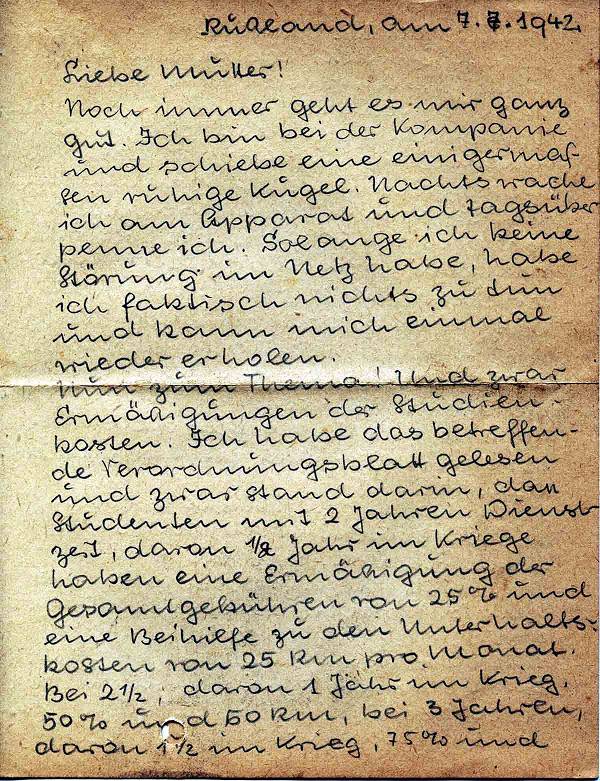 Rußland, am 7. 7. 1942
Liebe Mutter!
Noch immer geht es mir ganz
gut. Ich bin bei der Kompanie
und schiebe eine einigermaß-
sen ruhige Kugel. Nachts wache
ich am Apparat und tagsüber
penne ich. Solange ich keine
Störung im Netz habe, habe
ich faktisch nichts zu tun
und kann mich einmal
wieder erholen.
Nun zum Thema! Und zwar
Ermäßigungen der Studien-
kosten. Ich habe das betreffen-
de Verordnungsblatt gelesen
und zwar stand darin, daß
Studenten mit 2 Jahren Dienst
zeit, davon 1/2 Jahr im Kriege
haben eine Ermäßigung der
Gesamtgebühren von 25% und
eine Beihilfe zu den Unterhalts-
kosten von 25 Rm pro Monat.
Bei 2 1/2, davon 1 Jahr im Krieg,
50% und 50 Rm, bei 3 Jahren,
davon 1 1/2 im Krieg, 75% und